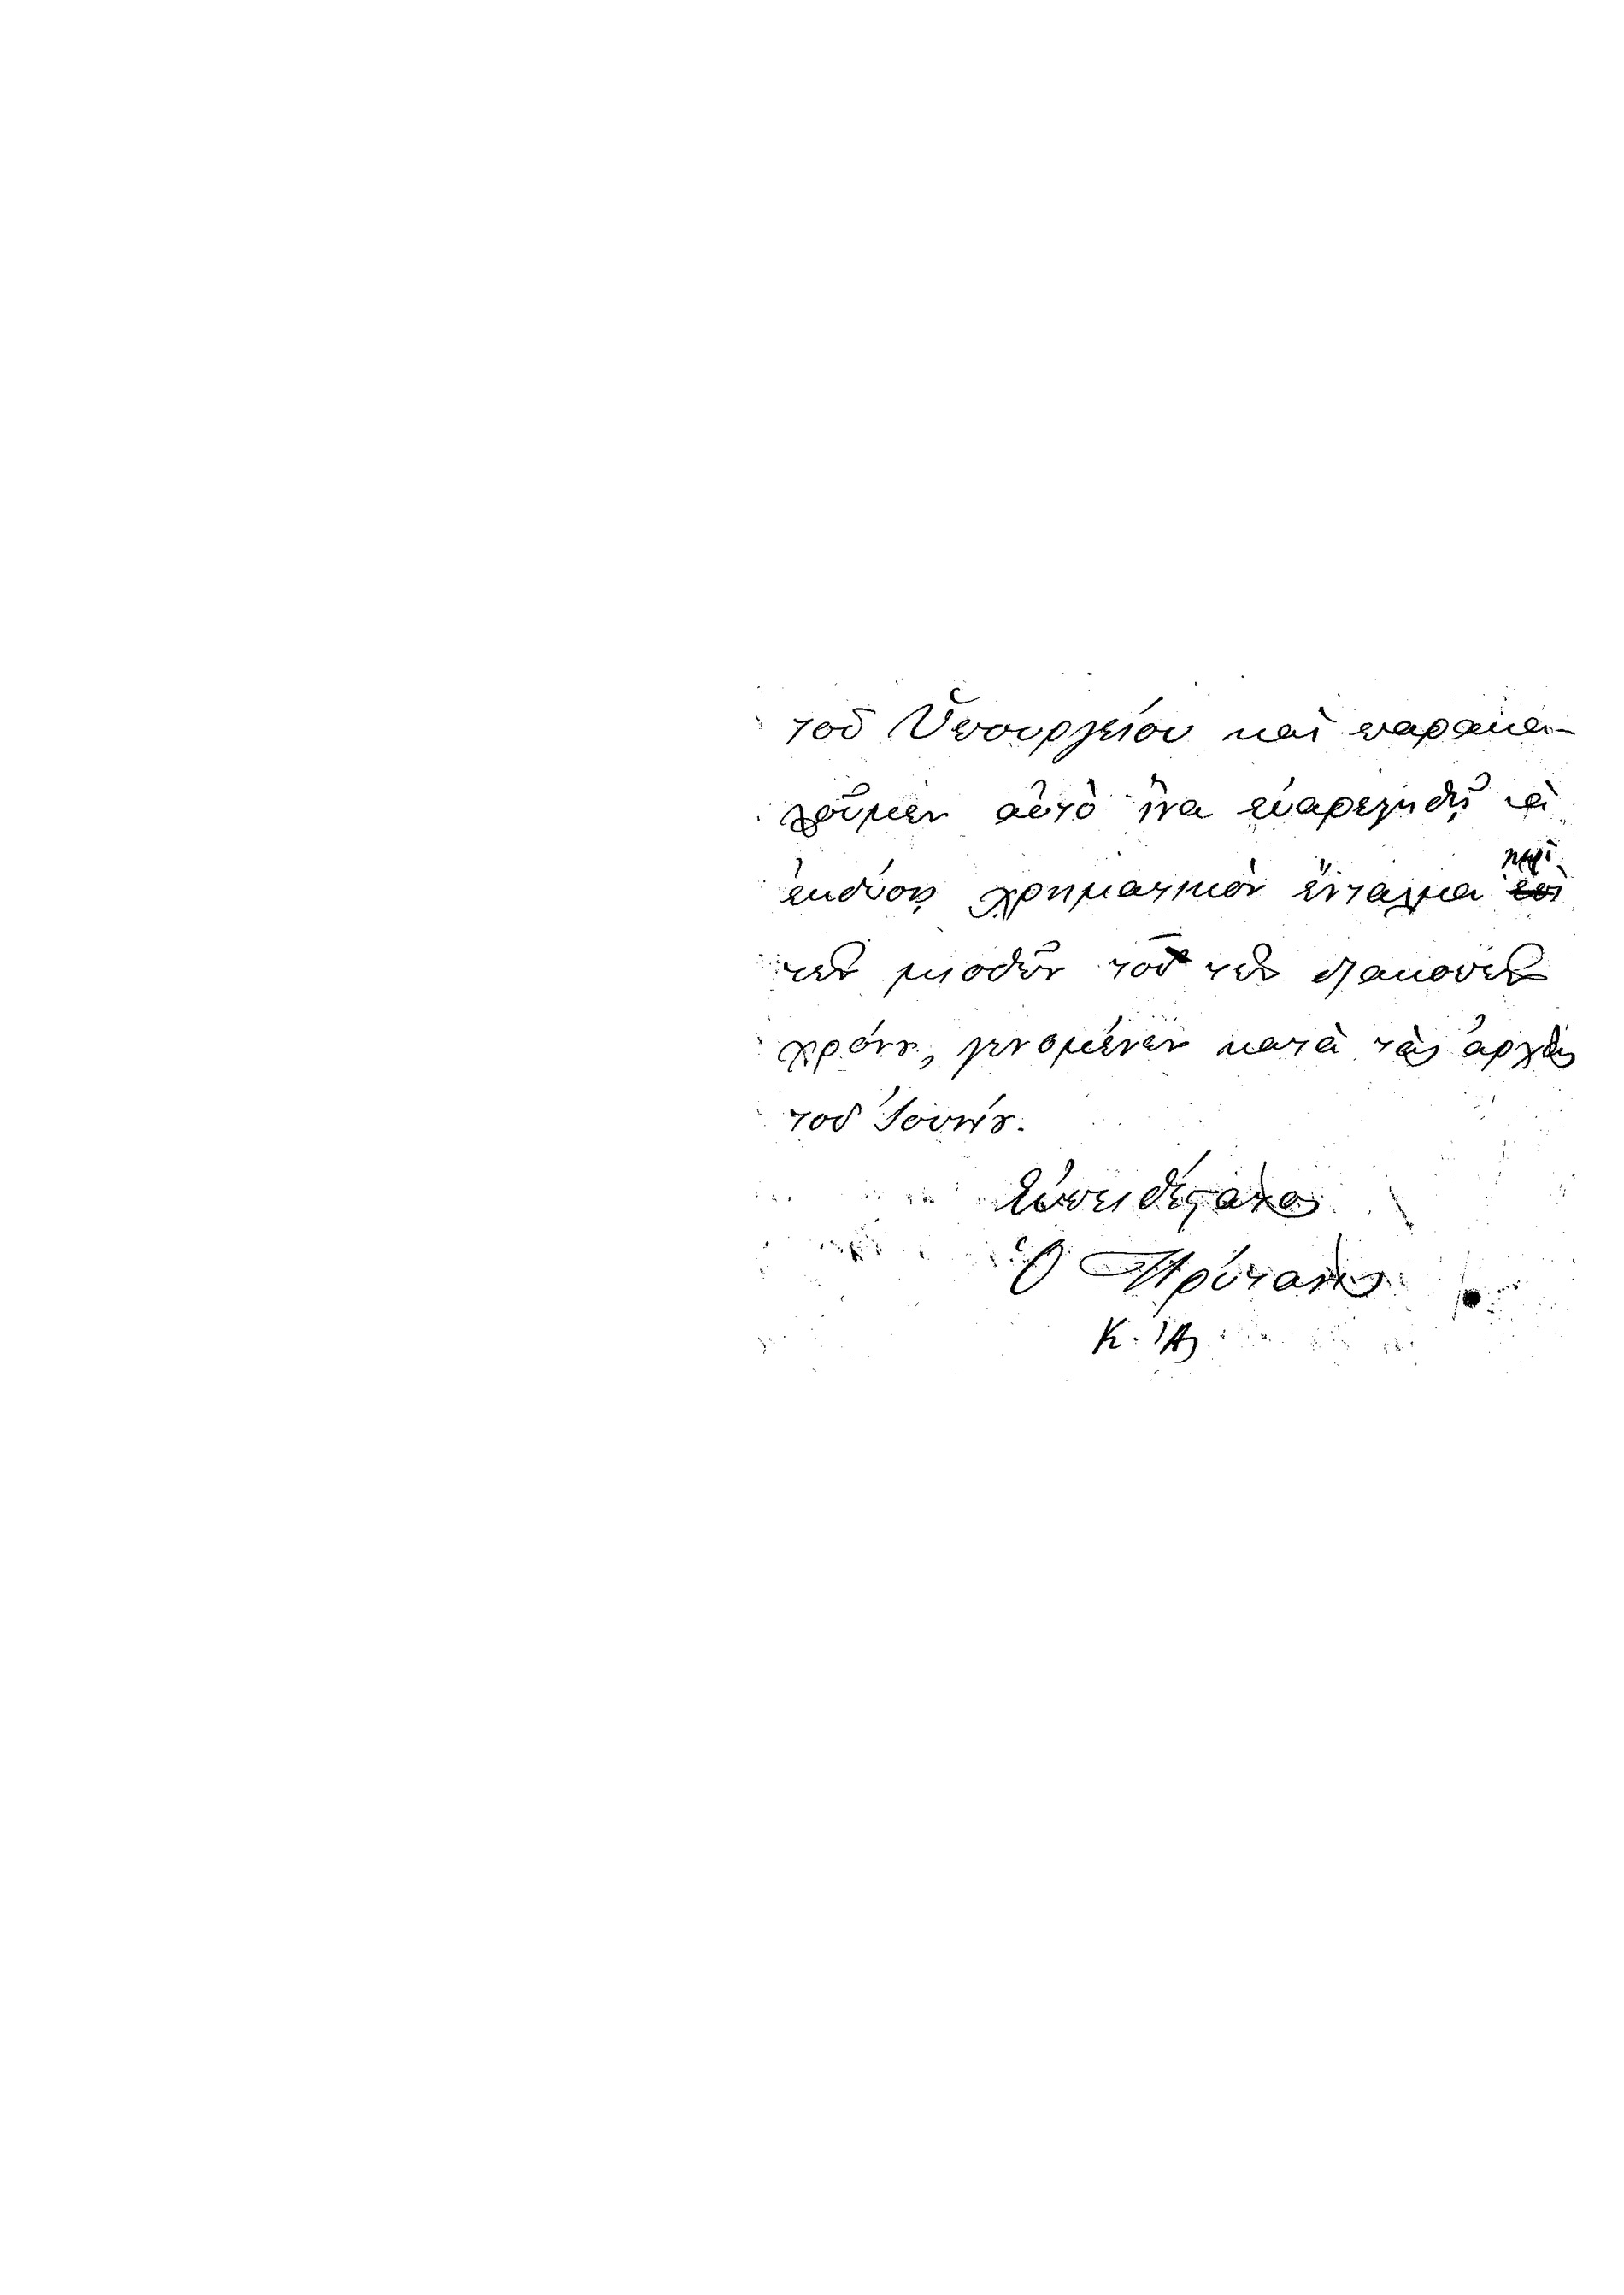 τοῦ Ὑπουργείου καὶ παρακα-
λοῦμεν αὐτὸ ἵνα εὐαρεστηθῇ νὰ
ἐκδόσῃ χρηματικὸν ἔνταλμα περὶ
τῶν μισθῶν τοῦ
χρόνου, γενομένων κατὰ τὰς ἀρχὰς
τοῦ Ἰουνίου.
Εὐπειθέστατος
Ὁ Πρύτανις
Κ.